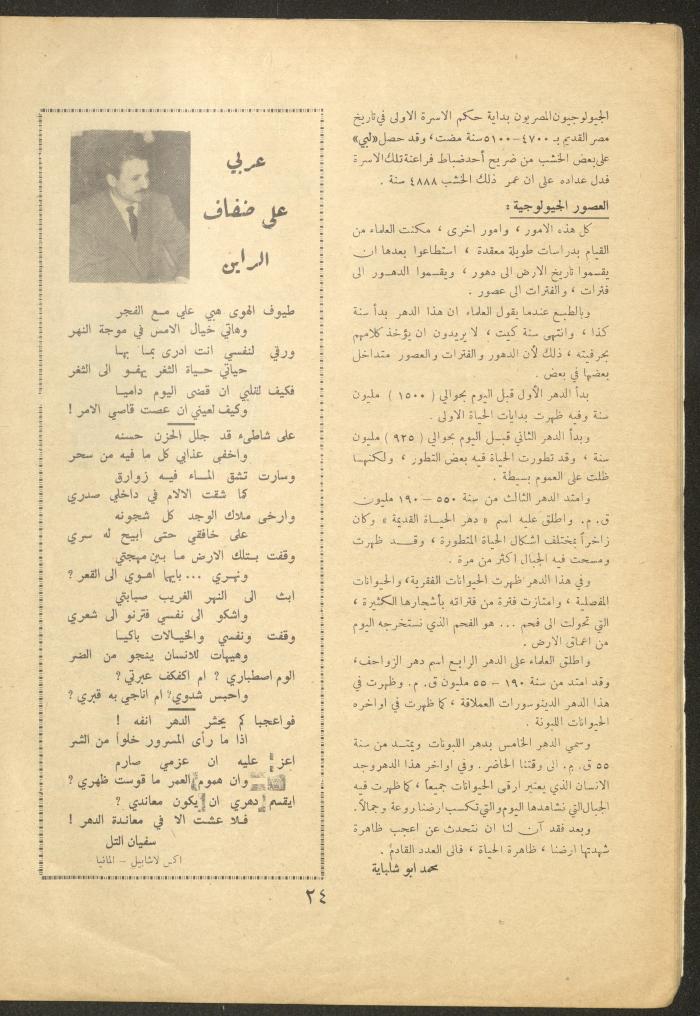 الجيولوجيون المصريون بداية حكم الاسرة الاولى في تاريخ
مصر القديم بـ ٤٧٠٠ – ٥١٠٠ سنة مضت، وقد حصل «لبي»
على بعض الخشب من ضريح أحد ضباط فراعنة تلك الاسرة
فدل عداده على ان عمر ذلك الخشب ٤٨٨٨ سنة .
العصور الجيولوجية :
كل هذه الامور ، وامور اخرى ، مكنت العلماء من
القيام بدراسات طويلة معقدة ، استطاعوا بعدها ان
يقسموا تاريخ الارض الى دهور ، ويقسموا الدهور الى
فترات ، والفترات الى عصور .
وبالطبع عندما يقول العلماء ان هذا الدهر بدأ سنة
كذا ، وانتهى سنة كيت ، لا يريدون ان يؤخذ كلامهم
بحرفيته ، ذلك لأن الدهور والفترات والعصور متداخل
بعضها في بعض .
بدأ الدهر الأول قبل اليوم بحوالي ( ١٥٠٠ ) مليون
سنة وفيه ظهرت بدايات الحياة الاولى .
وبدأ الدهر الثاني قبل اليوم بحوالي ( ٩٢٥ ) مليون
سنة ، وقد تطورت الحياة فيه بعض التطور ، ولكنها
ظلت على العموم بسيطة .
وامتد الدهر الثالث من سنة ٥٥٠ – ١٩٠ مليون
ق. م. واطلق عليه اسم « دهر الحياة القديمة » وكان
زاخراً بمختلف اشكال الحياة المتطورة ، وقد ظهرت
ومسحت فيه الجبال اكثر من مرة .
وفي هذا الدهر ظهرت الحيوانات الفقرية، والحيوانات
المفصلية ، وامتازت فترة من فتراته بأشجارها الكثيرة ،
التي تحولت الى فحم ... هو الفحم الذي نستخرجه اليوم
من اعماق الارض .
واطلق العلماء على الدهر الرابع اسم دهر الزواحف،
وقد امتد من سنة ١٩٠ – ٥٥ مليون ق. م. وظهرت في
هذا الدهر الدينوسورات العملاقة ، كما ظهرت في اواخره
الحيوانات اللبونة .
وسمي الدهر الخامس بدهر اللبونات ويمتد من سنة
٥٥ ق. م. الى وقتنا الحاضر. وفي اواخر هذا الدهر وجد
الانسان الذي يعتبر ارقى الحيوانات جميعاً ، كما ظهرت فيه
الجبال التي نشاهدها اليوم والتي تكسب ارضنا روعة وجمالاً.
وبعد فقد آن لنا ان نتحدث عن اعجب ظاهرة
شهدتها ارضنا ، ظاهرة الحياة ، فالى العدد القادم .
محمد ابو شلباية
عربي
على ضفاف
الراين
طيوف الهوى هبي علي مع الفجر
وهاتي خيال الامس في موجة النهر
ورقي لنفسي انت ادرى بما بها
حياتي حياة الثغر يهفو الى الثغر
فكيف لقلبي ان قضى اليوم داميا
وكيف لعيني ان عصت قاصي الامر !
على شاطىء قد جلل الحزن حسنه
واخفى عذابي كل ما فيه من سحر
وسارت تشق الماء فيه زوارق
كما شقت الالام في داخلي صدري
وارخى ملاك الوجد كل شجونه
على خافقي حتى ابيح له سري
وقفت بتلك الارض ما بين مهجتي
ونهري ... بايها اهوي الى القعر ؟
ابث الى النهر الغريب صبابتي
واشكو الى نفسي فترنو الى شعري
وقفت ونفسي والخيالات باكيا
وهيهات للانسان ينجو من الضر
الوم اصطباري ؟ ام اكفكف عبرتي ؟
واحبس شدوي؟ ام اناجي به قبري ؟
فواعجبا كم يحشر الدهر انفه !
اذا ما رأى المسرور خلواً من الشر
اعز عليه ان عزمي صارم
وان هموم العمر ما قوست ظهري ؟
ايقسم دهري ان يكون معاندي ؟
فلا عشت الا في معاندة الدهر !
سفيان التل
اكس لاشابيل – المانيا
٢٤